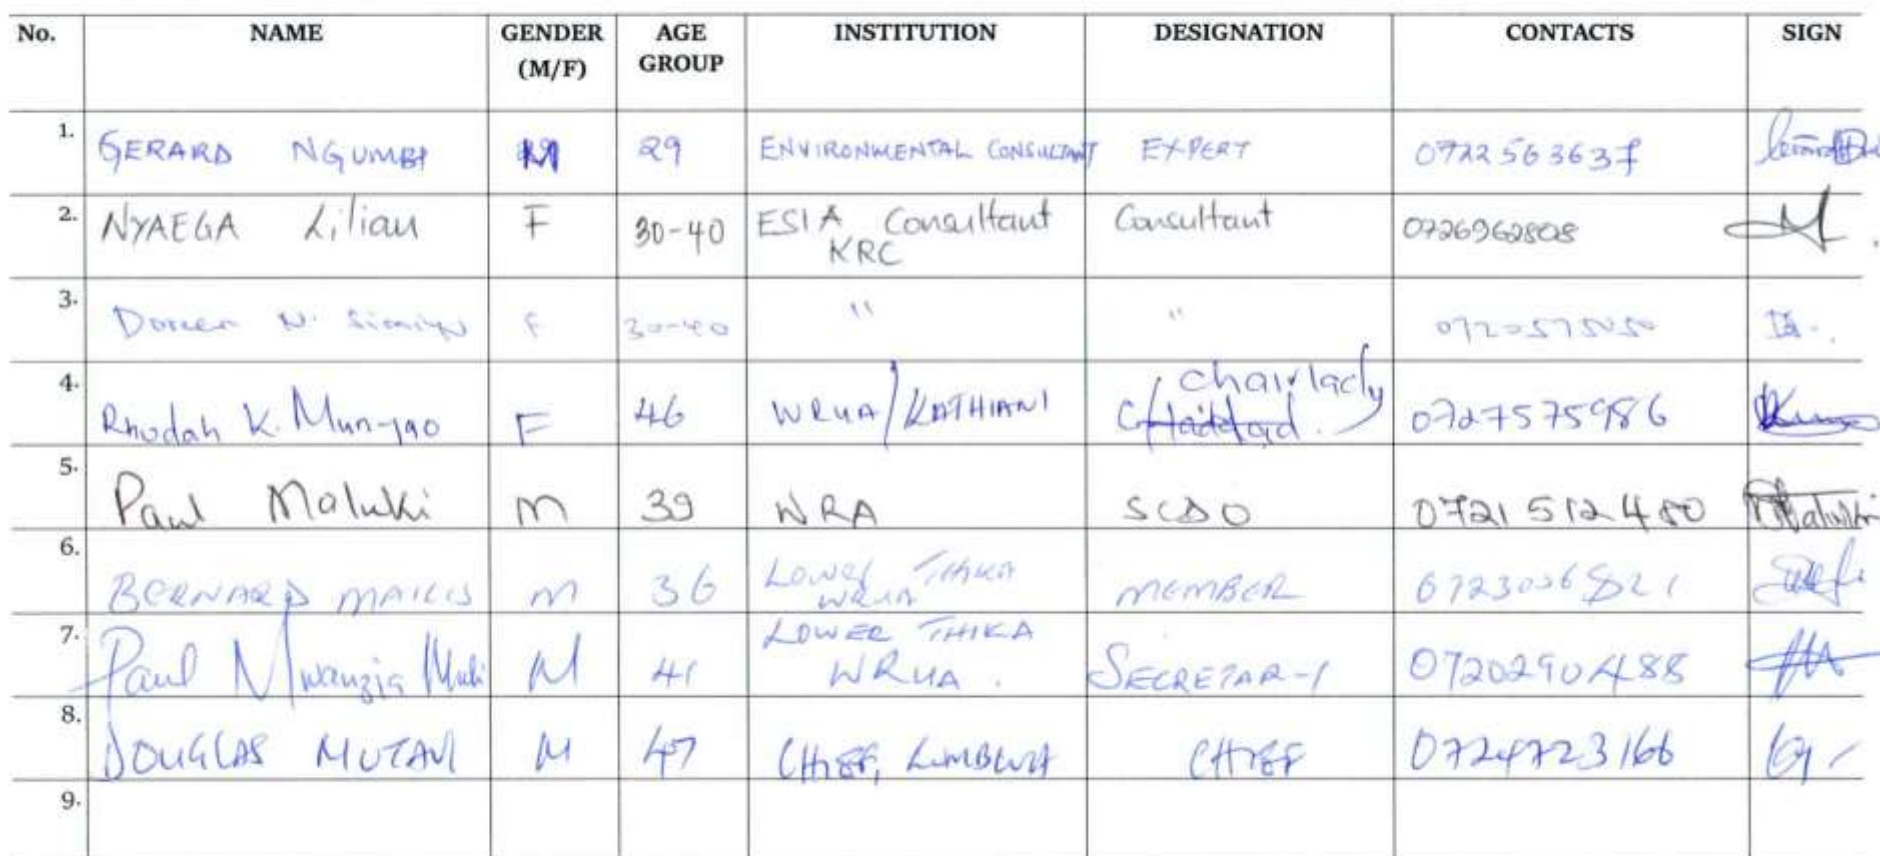 No. NAME GENDER (M/F) AGE GROUP INSTITUTION DESIGNATION CONTACTS SIGN
1. GERARD NGUMBI M 29 ENVIRONMENTAL CONSULTANT EXPERT 0722563637
2. NYAEGA Lilian F 30-40 ESIA Consultant KRC Consultant 0726962808
3. Doreen N. F 30-40 " " 0720575050
4. Rhodah K. Munyao F 46 WRUA/KATHIANI chairlady 0727575986
5. Paul Maluki M 39 WRA SCDO 0721512480 Maluki
6. BERNARD M 36 LOWER THIKA WRUA MEMBER 0723006821
7. Paul Mwanzia M 41 LOWER THIKA WRUA. SECRETARY 0720290488
8. DOUGLAS MUTAVI M 47 CHIEF, CHIEF 0724723166
9.